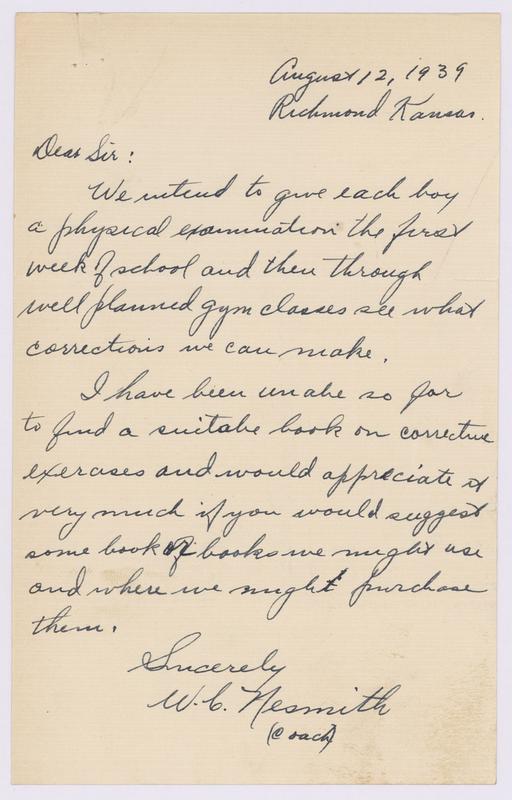 August 12, 1939
Richmond Kansas.
Dear Sir:
We intend to give each boy
a physical examination the first
week of school and then through
well planned gym classes see what
corrections we can make.
I have been unabe so far
to find a suitabe book on corrective
exercises and would appreciate it
very much if you would suggest
some book or books we might use
and where we might purchase
them.
Sincerely
W. C. Nesmith
(Coach)